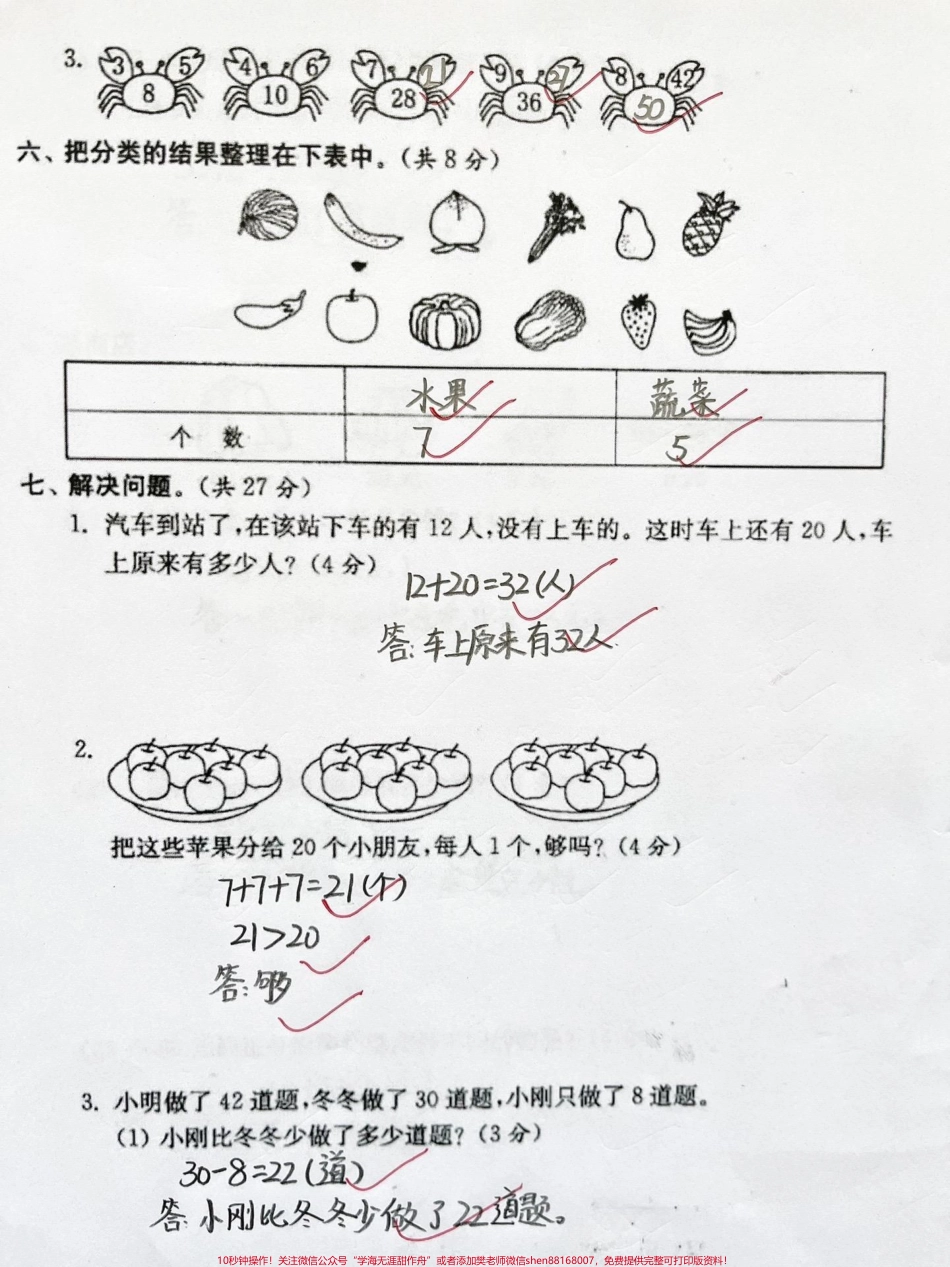 3. 3 5 4 6 7 21 9 27 8 42
8 10 28 36 50
六、把分类的结果整理在下表中。(共8分)
水果 蔬菜
个 数 7 5
七、解决问题。(共27分)
1. 汽车到站了,在该站下车的有12人,没有上车的。这时车上还有20人,车
上原来有多少人?(4分)
12+20=32(人)
答:车上原来有32人.
2.
把这些苹果分给20个小朋友,每人1个,够吗?(4分)
7+7+7=21(个)
21>20
答:够
3. 小明做了42道题,冬冬做了30道题,小刚只做了8道题。
(1) 小刚比冬冬少做了多少道题?(3分)
30-8=22(道)
答:小刚比冬冬少做了22道题。
10秒钟操作!关注微信公众号“学海无涯甜作舟”或者添加樊老师微信shen88168007,免费提供完整可打印版资料!